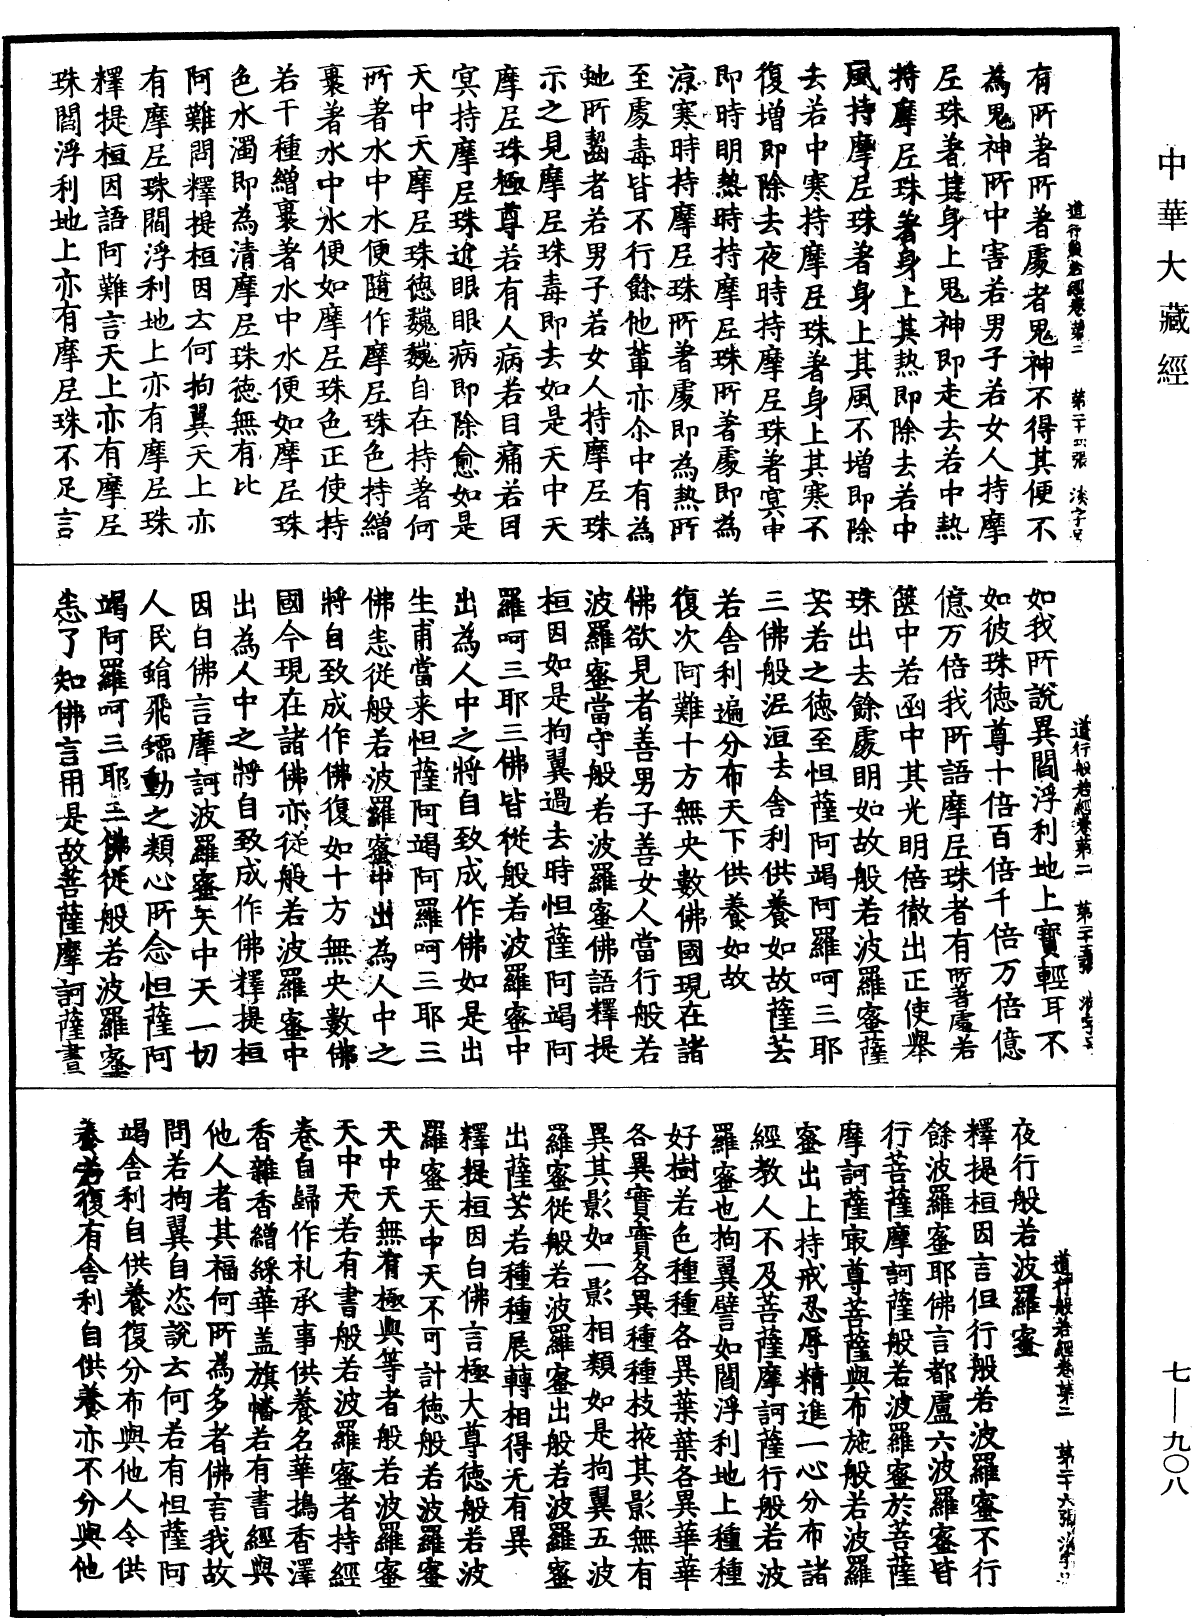 中華大藏經
道行般若經卷第二 第二十四張 淡字号
有所著所著處者鬼神不得其便不
為鬼神所中害若男子若女人持摩
尼珠著其身上鬼神即走去若中熱
持摩尼珠著身上其熱即除去若中
風持摩尼珠著身上其風不增即除
去若中寒持摩尼珠著身上其寒不
復增即除去夜時持摩尼珠著冥中
即時明熱時持摩尼珠所著處即為
涼寒時持摩尼珠所著處即為熱所
至處毒皆不行餘他輩亦尒中有為
虵所齧者若男子若女人持摩尼珠
示之見摩尼珠毒即去如是天中天
摩尼珠極尊若有人病若目痛若目
冥持摩尼珠近眼眼病即除愈如是
天中天摩尼珠德巍巍自在持著何
所著水中水便隨作摩尼珠色持繒
裹著水中水便如摩尼珠色正使持
若干種繒裹著水中水便如摩尼珠
色水濁即為清摩尼珠德無有比
阿難問釋提桓因云何拘翼天上亦
有摩尼珠閻浮利地上亦有摩尼珠
釋提桓因語阿難言天上亦有摩尼
珠閻浮利地上亦有摩尼珠不足言
道行般若經卷第二 第二十五張 淡字号
如我所說異閻浮利地上寶輕耳不
如彼珠德尊十倍百倍千倍万倍億
億万倍我所語摩尼珠者有所著處若
篋中若函中其光明倍徹出正使舉
珠出去餘處明如故般若波羅蜜薩
芸若之德至怛薩阿竭阿羅呵三耶
三佛般泥洹去舍利供養如故薩芸
若舍利遍分布天下供養如故
復次阿難十方無央數佛國現在諸
佛欲見者善男子善女人當行般若
波羅蜜當守般若波羅蜜佛語釋提
桓因如是拘翼過去時怛薩阿竭阿
羅呵三耶三佛皆從般若波羅蜜中
出為人中之將自致成作佛如是出
生甫當来怛薩阿竭阿羅呵三耶三
佛悉從般若波羅蜜中出為人中之
將自致成作佛復如十方無央數佛
國今現在諸佛亦從般若波羅蜜中
出為人中之將自致成作佛釋提桓
因白佛言摩訶波羅蜜天中天一切
人民蜎飛蠕動之類心所念怛薩阿
竭阿羅呵三耶三佛從般若波羅蜜
悉了知佛言用是故菩薩摩訶薩晝
道行般若經卷第二 第二十六張 淡字号
夜行般若波羅蜜
釋提桓因言但行般若波羅蜜不行
餘波羅蜜耶佛言都盧六波羅蜜皆
行菩薩摩訶薩般若波羅蜜於菩薩
摩訶薩㝡尊菩薩與布施般若波羅
蜜出上持戒忍辱精進一心分布諸
經教人不及菩薩摩訶薩行般若波
羅蜜也拘翼譬如閻浮利地上種種
好樹若色種種各異葉葉各異華華
各異實實各異種種枝掖其影無有
異其影如一影相類如是拘翼五波
羅蜜從般若波羅蜜出般若波羅蜜
出薩芸若種種展轉相得无有異
釋提桓因白佛言極大尊德般若波
羅蜜天中天不可計德般若波羅蜜
天中天無有極與等者般若波羅蜜
天中天若有書般若波羅蜜者持經
卷自歸作礼承事供養名華搗香澤
香雜香繒綵華盖旗幡若有書經與
他人者其福何所為多者佛言我故
問若拘翼自恣說云何若有怛薩阿
竭舍利自供養復分布與他人令供
養若復有舍利自供養亦不分與他
七—九〇八